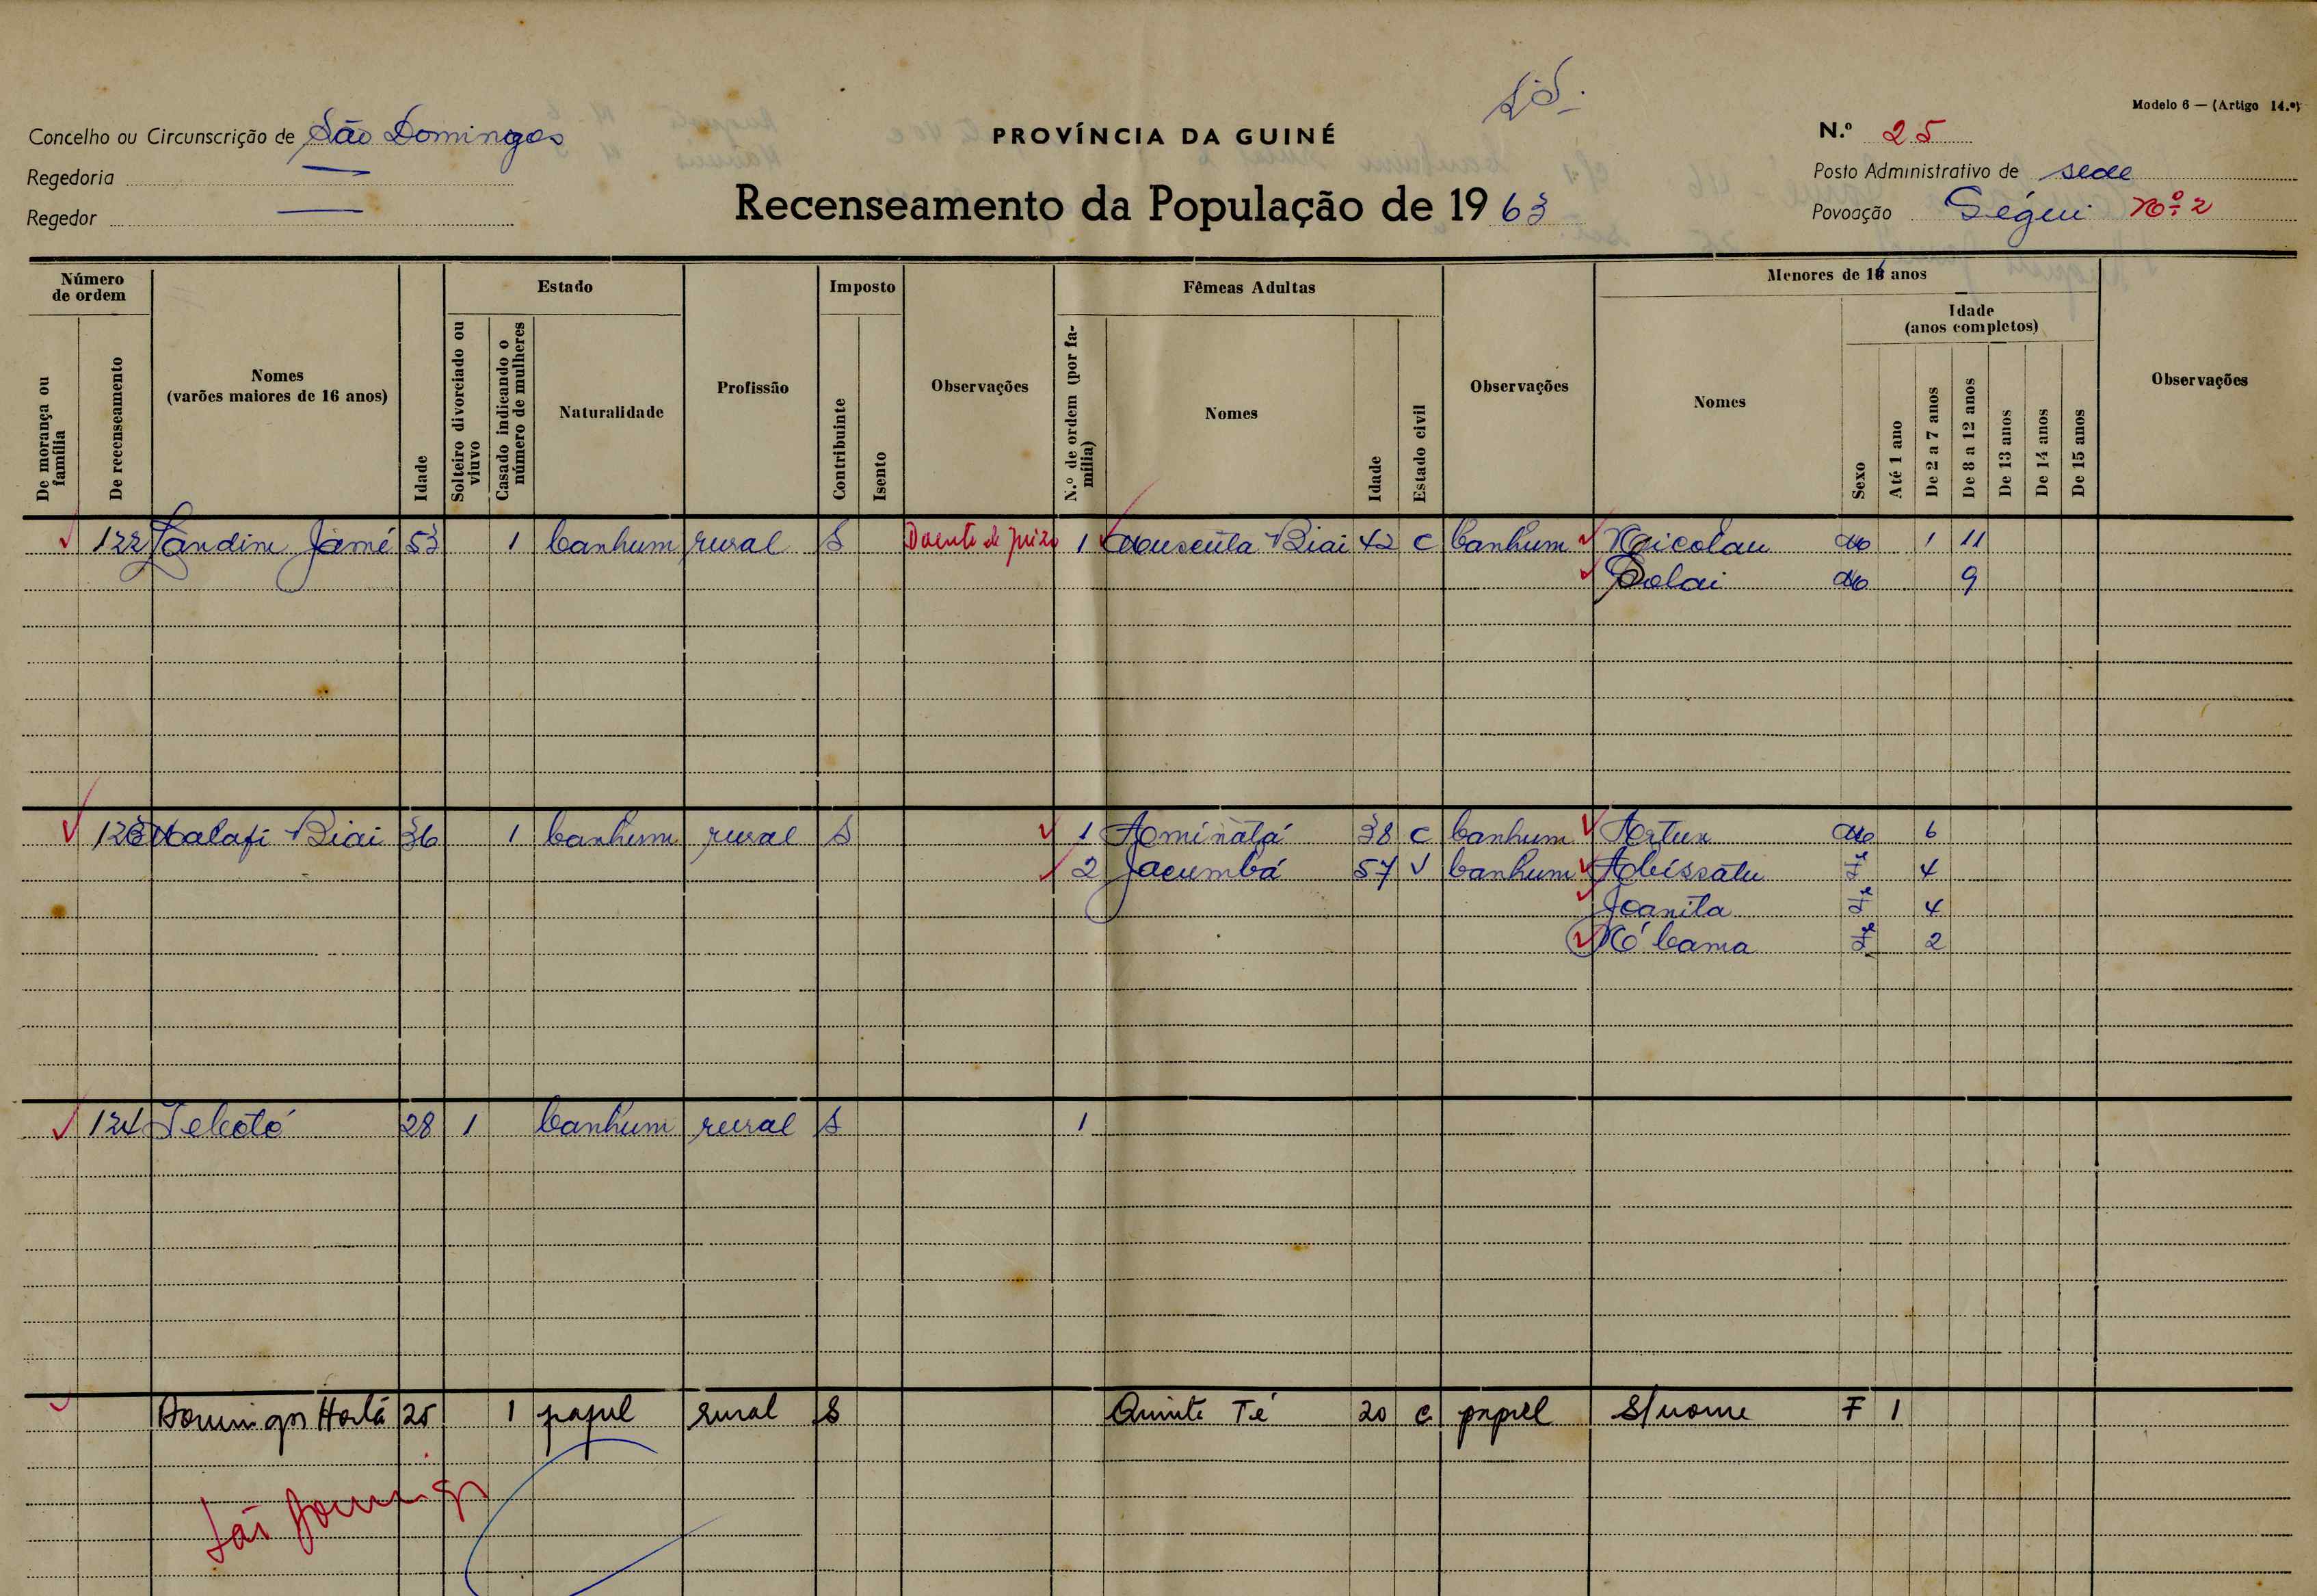 S.D.
Modelo 6 — (Artigo 14.º)
Concelho ou Circunscrição de São Domingos
PROVÍNCIA DA GUINÉ
N.º 25
Regedoria —
Posto Administrativo de sede
Regedor —
Recenseamento da População de 1963
Povoação Ségui nº 2
Número de ordem
Estado
Imposto
Fêmeas Adultas
Menores de 16 anos
Idade (anos completos)
De morança ou família
De recenseamento
Nomes (varões maiores de 16 anos)
Idade
Solteiro divorciado ou viuvo
Casado indicando o número de mulheres
Naturalidade
Profissão
Contribuinte
Isento
Observações
N.º de ordem (por família)
Nomes
Idade
Estado civil
Observações
Nomes
Sexo
Até 1 ano
De 2 a 7 anos
De 8 a 12 anos
De 13 anos
De 14 anos
De 15 anos
Observações
122 Landim Jamé 53 1 banhum rural S Doente de juizo 1 Biai 42 C banhum Nicolau M 1 11
Solai M 9
123 Malafi Biai 36 1 banhum rural S 1 Aminatá 38 C banhum Artur M 6
2 Jacumbá 57 V banhum Abissatu Fe 4
Joanita Fe 4
Nó bama Fe 2
124 28 1 banhum rural S 1
Domingos Hortá 25 1 papel rural S Quinte Té 20 C papel S/nome F 1
São Domingos